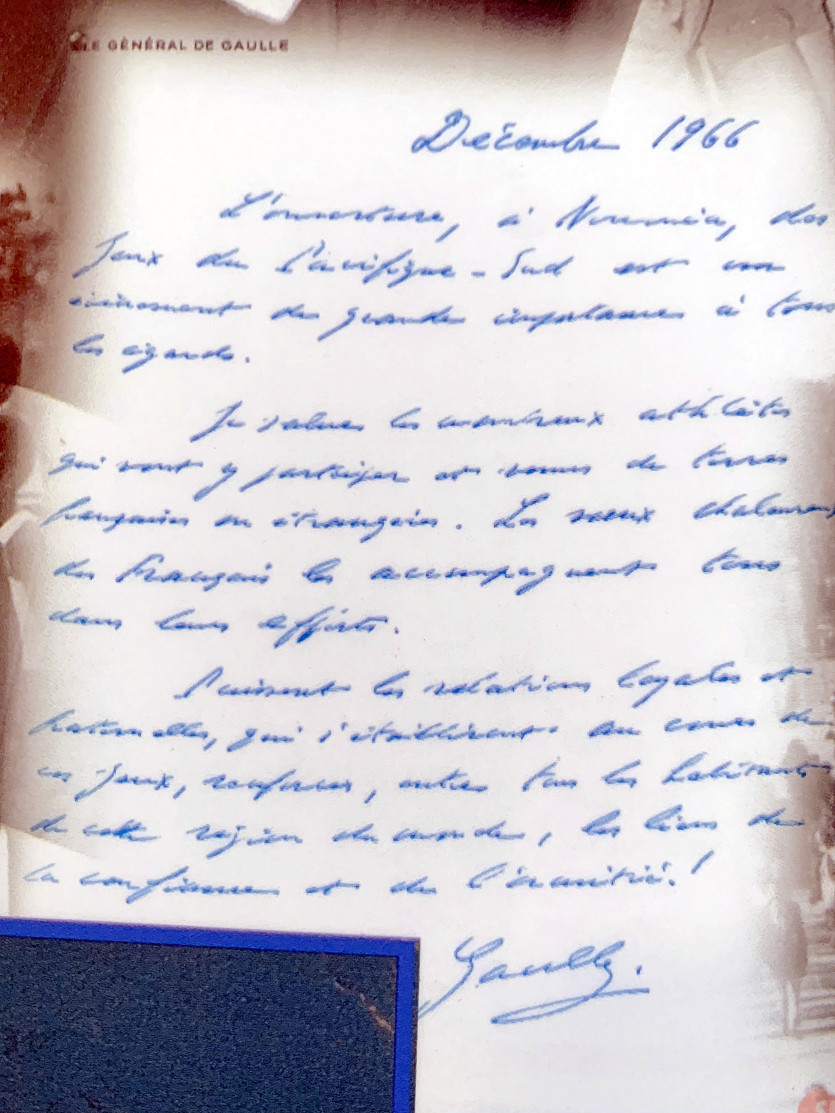 LE GÉNÉRAL DE GAULLE
Décembre 1966
L'ouverture, à Nouméa, des
Jeux du Pacifique-Sud est un
événement de grande importance à tous
les égards.
Je salue les nombreux athlètes
qui vont y participer et venus de terres
françaises ou étrangères. Les vœux chaleureux
des Français les accompagnent tous
dans leurs efforts.
Puissent les relations loyales et
fraternelles, qui s'établiront au cours de
ces Jeux, renforcer, entre tous les habitants
de cette région du monde, les liens de
la confiance et de l'amitié !